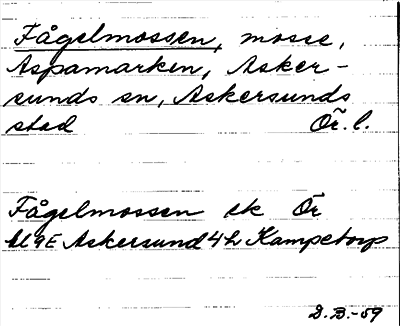 Fågelmossen, mosse,
Aspamarken, Asker-
sunds sn, Askersunds
stad Ör. l.
Fågelmossen ek Ör
9E Askersund 4h Kampetorp
D.B.-59